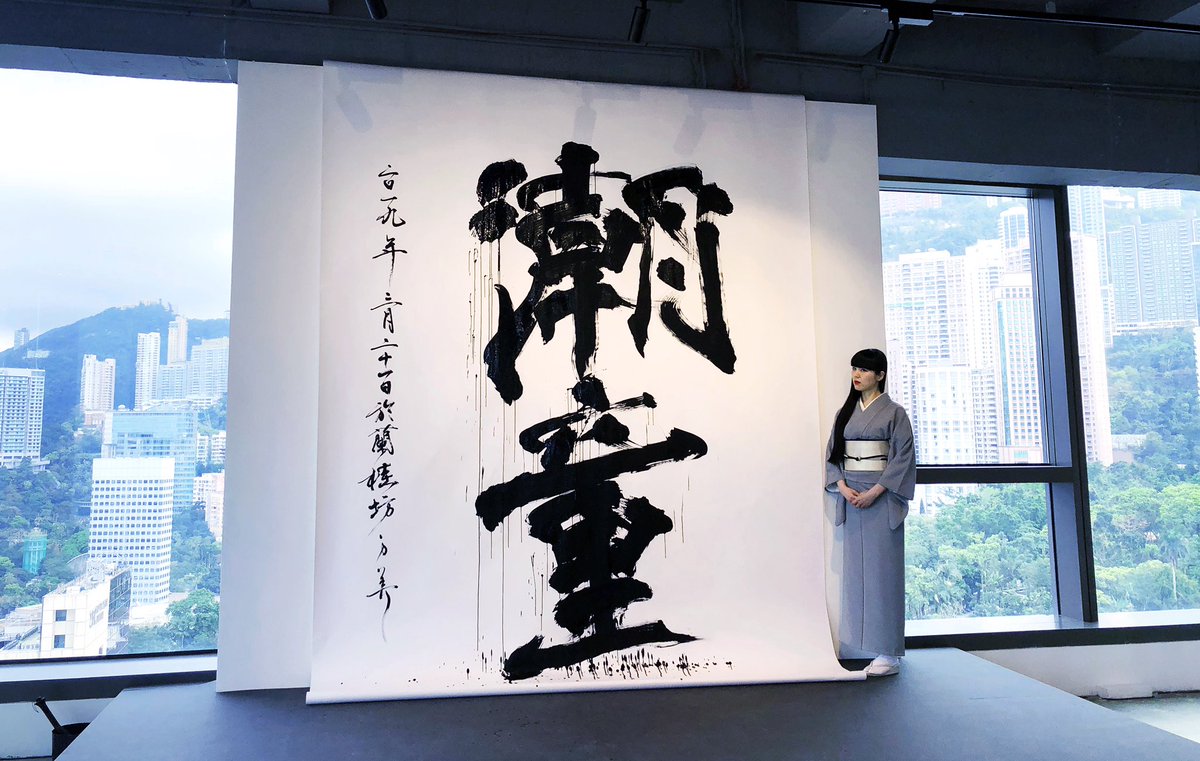 潮童
二〇一九年 三月二十一日 於蘭桂坊